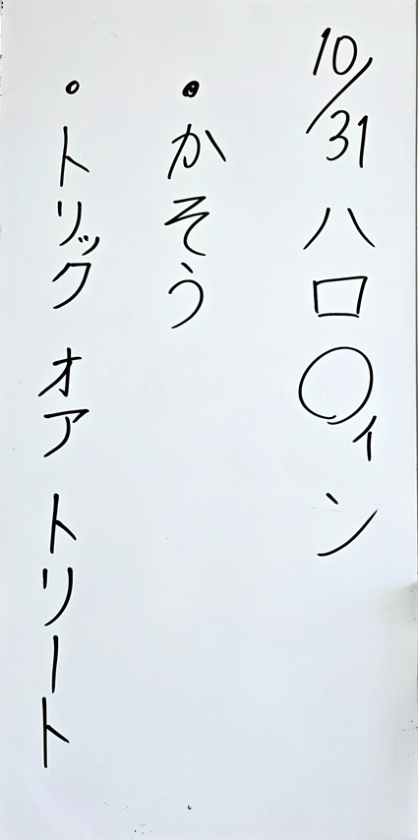 10/31 ハロ〇ィン
・かそう
・トリック オア トリート